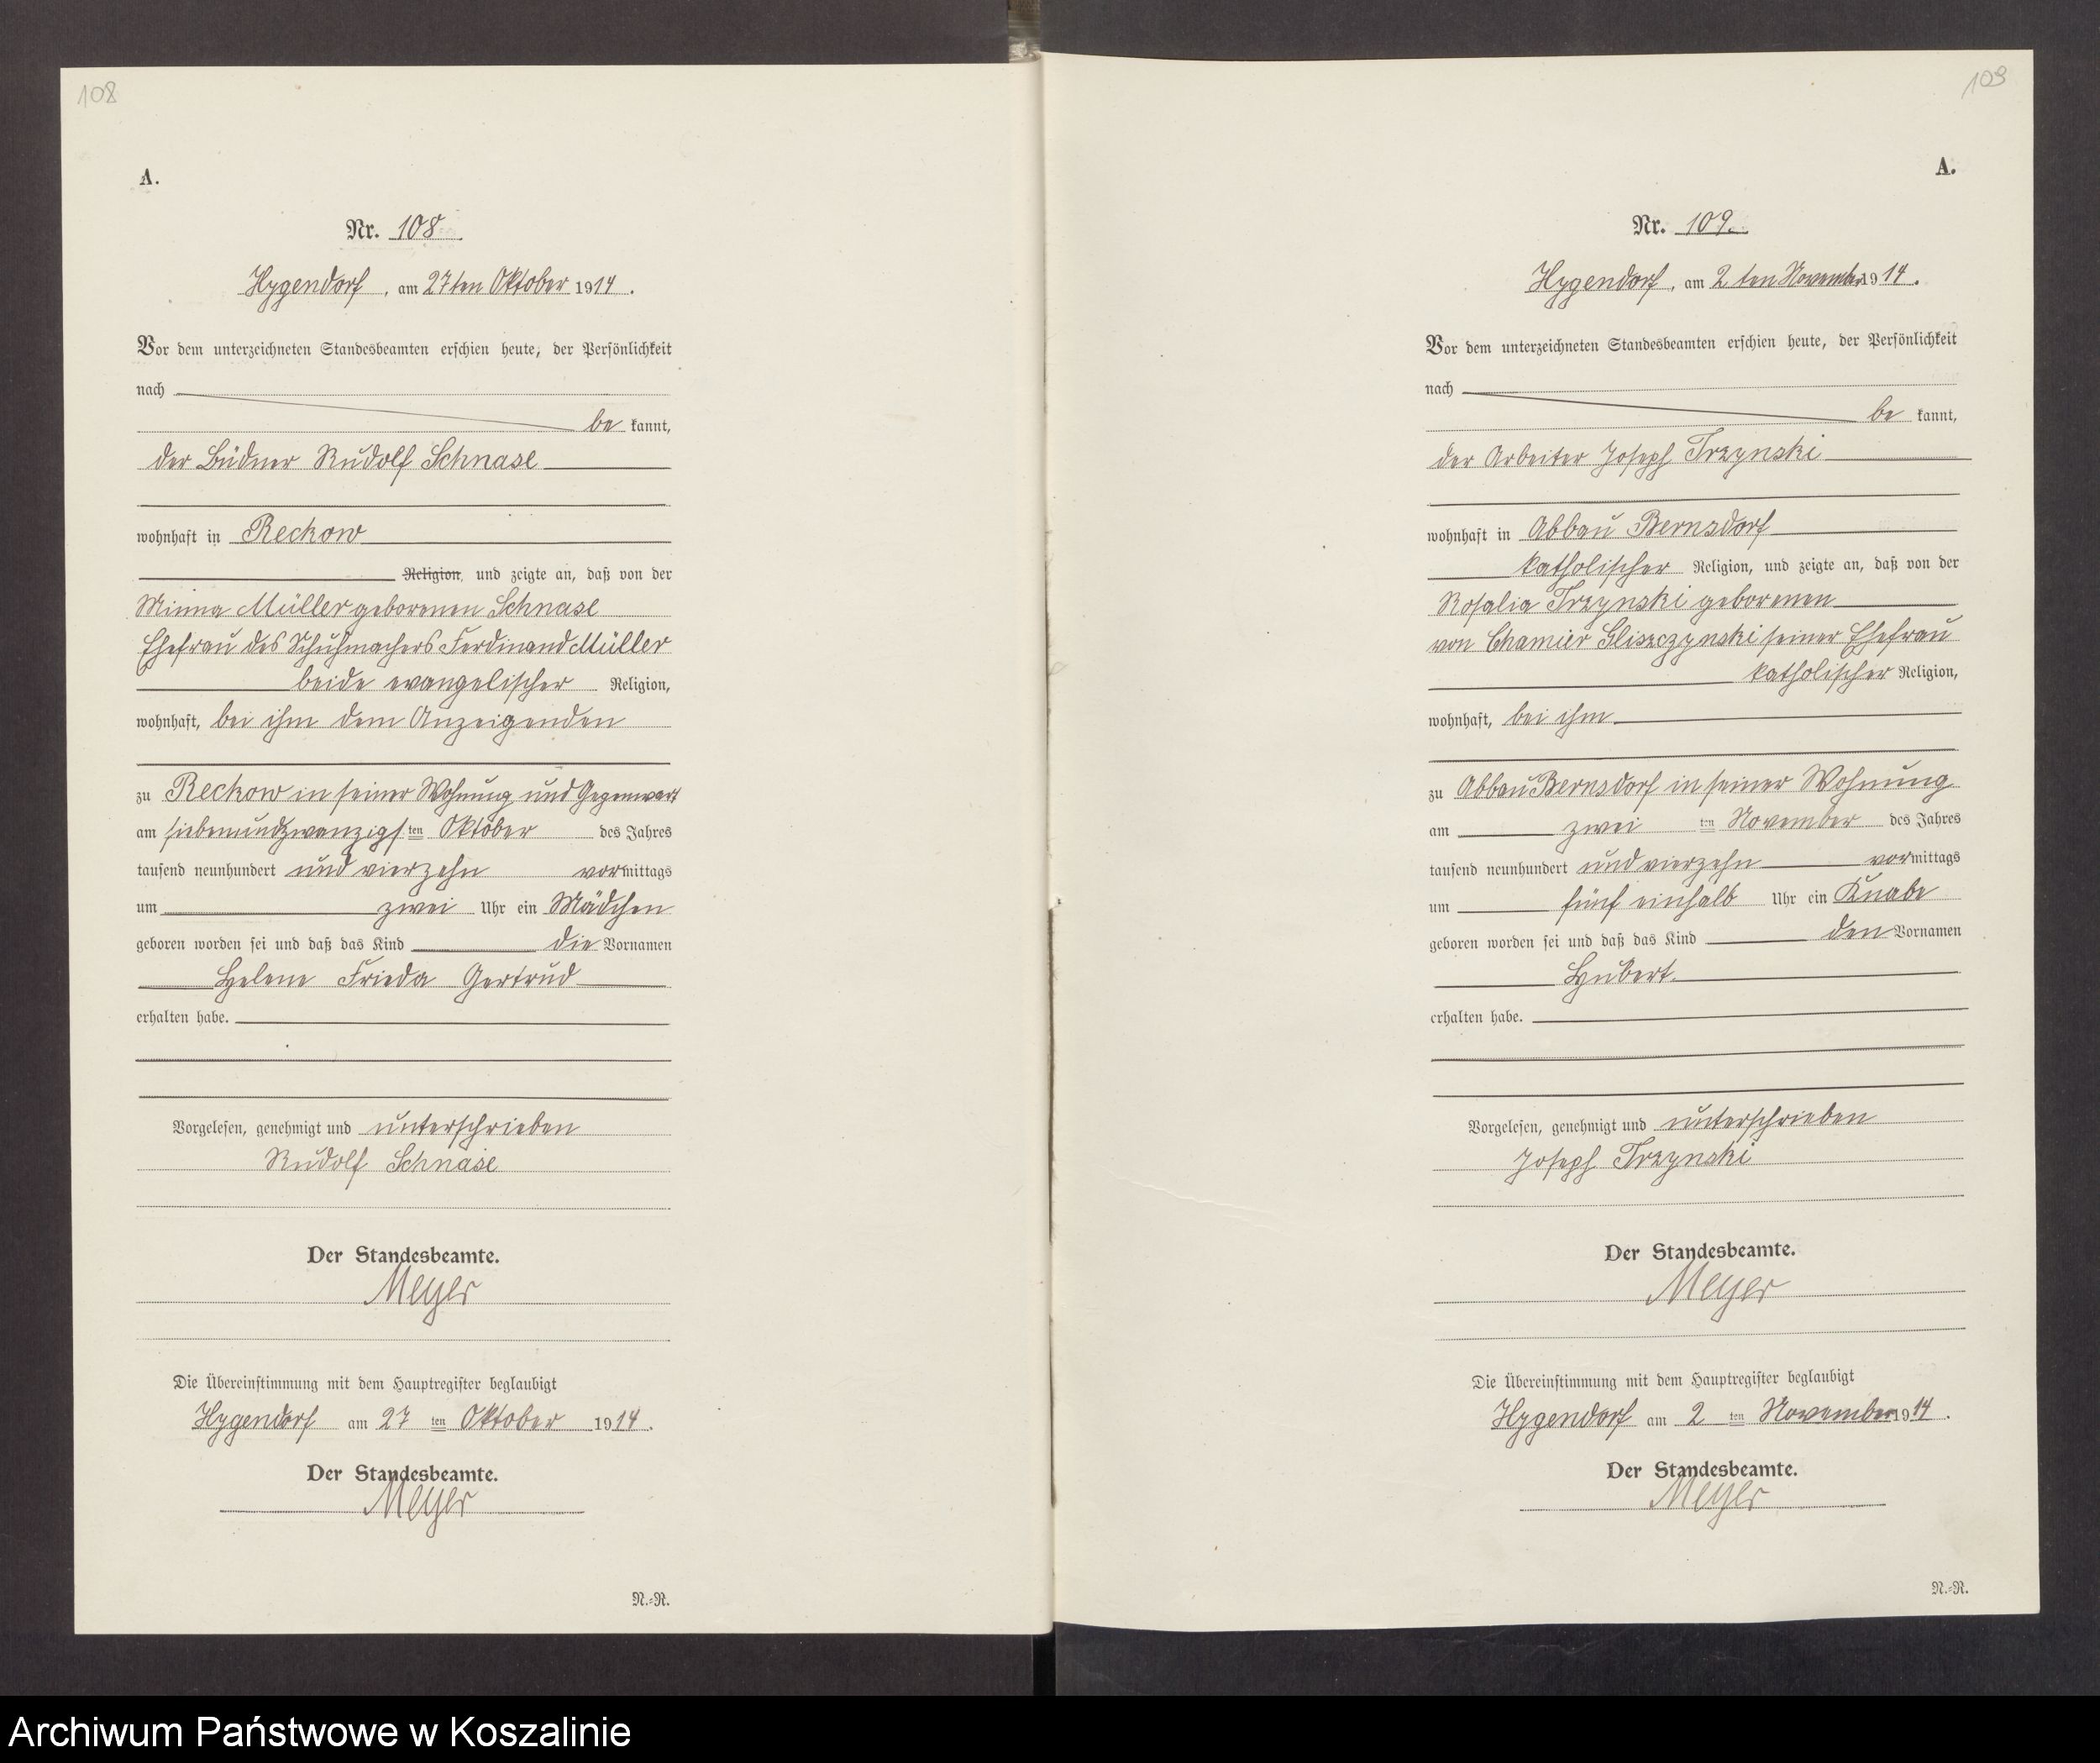 108
A.
Nr. 108
Hygendorf, am 27ten Oktober 1914.
Vor dem unterzeichneten Standesbeamten erschien heute, der Persönlichkeit
nach
be kannt,
der Büdner Rudolf Schnase
wohnhaft in Reckow
Religion, und zeigte an, daß von der
Minna Müller geborenen Schnase
Ehefrau des Schuhmachers Ferdinand Müller
beide evangelischer Religion,
wohnhaft, bei ihm dem Anzeigenden
zu Reckow in seiner Wohnung und Gegenwart
am siebenundzwanzigsten Oktober des Jahres
tausend neunhundert und vierzehn vormittags
um zwei Uhr ein Mädchen
geboren worden sei und daß das Kind die Vornamen
Helene Frieda Gertrud
erhalten habe.
Vorgelesen, genehmigt und unterschrieben
Rudolf Schnase
Der Standesbeamte.
Meyer
Die Übereinstimmung mit dem Hauptregister beglaubigt
Hygendorf am 27 ten Oktober 1914.
Der Standesbeamte.
Meyer
N.=R.
109
A.
Nr. 109.
Hygendorf, am 2 ten November 1914.
Vor dem unterzeichneten Standesbeamten erschien heute, der Persönlichkeit
nach
be kannt,
der Arbeiter Joseph Trzynski
wohnhaft in Abbau Bernsdorf
katholischer Religion, und zeigte an, daß von der
Rosalia Trzynski geborenen
von Chamier Gliszczynski seiner Ehefrau
katholischer Religion,
wohnhaft, bei ihm
zu Abbau Bernsdorf in seiner Wohnung
am zwei ten November des Jahres
tausend neunhundert und vierzehn vormittags
um fünf einhalb Uhr ein Knabe
geboren worden sei und daß das Kind den Vornamen
Hubert.
erhalten habe.
Vorgelesen, genehmigt und unterschrieben
Joseph Trzynski
Der Standesbeamte.
Meyer
Die Übereinstimmung mit dem Hauptregister beglaubigt
Hygendorf am 2 ten November 1914.
Der Standesbeamte.
Meyer
N.=R.
Archiwum Państwowe w Koszalinie